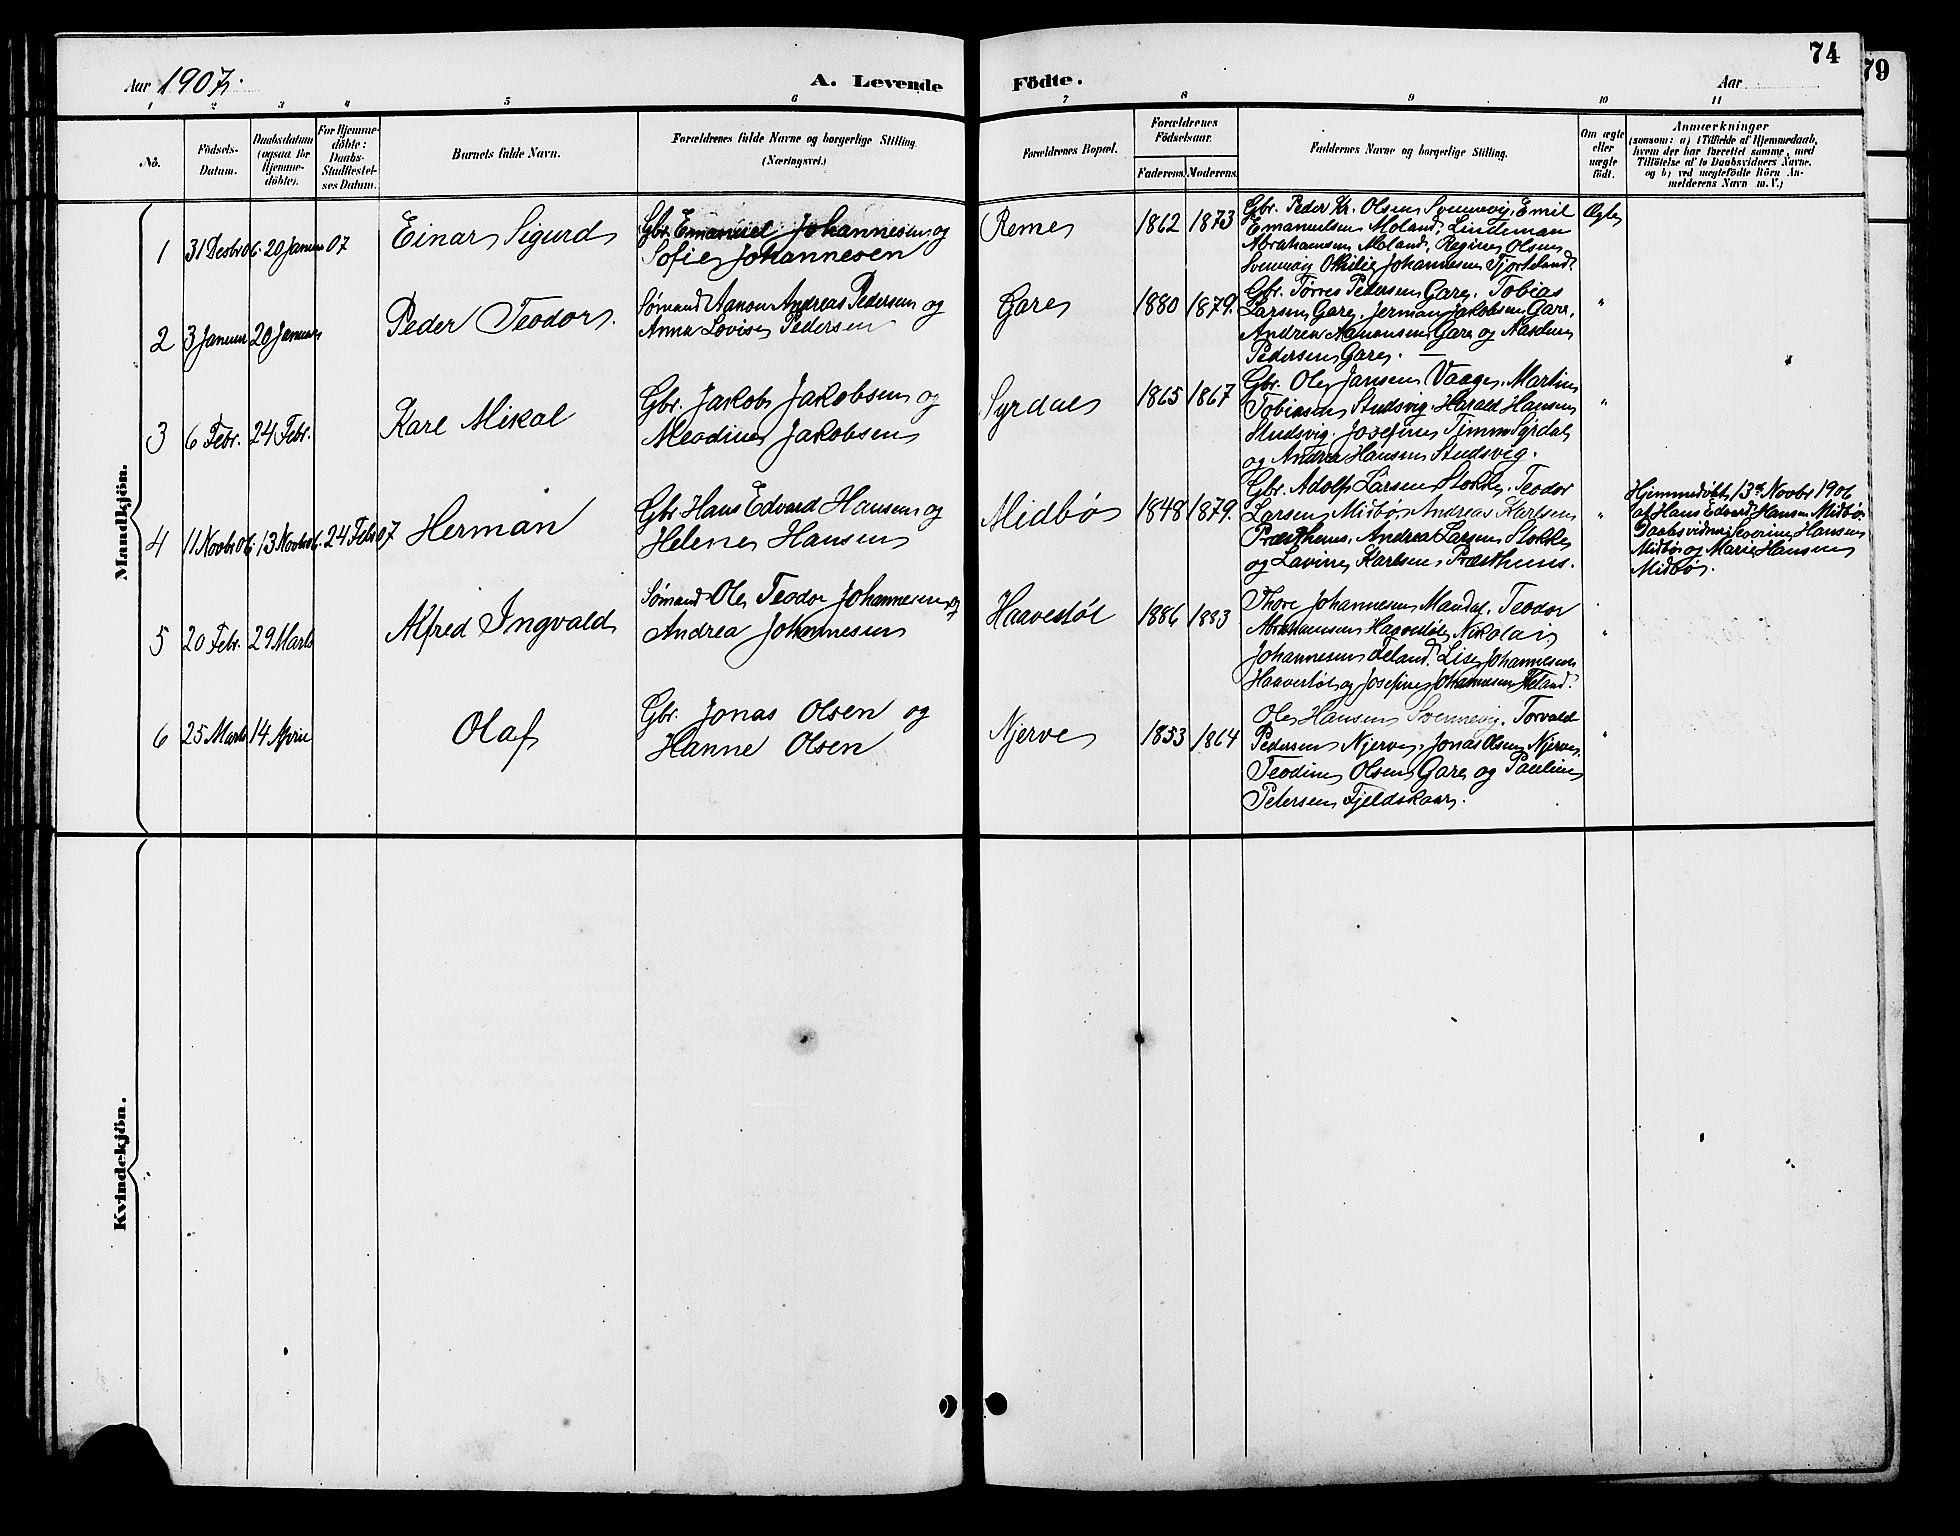 74
79
Aar 1907.
A. Levende Födte.
Aar
1 2 3 4 5 6 7 8 9 10 11
No.
Födsels-
Datum.
Daabsdatum
(ogsaa for
Hjemme-
döbte).
For Hjemme-
döbte:
Daabs-
Stadfæstel-
ses Datum.
Barnets fulde Navn.
Forældrenes fulde Navne og borgerlige Stilling
(Næringsvei.)
Forældrenes Bopæl.
Forældrenes
Födselsaar.
Faderens. Moderens.
Faddernes Navne og borgerlige Stilling.
Om ægte
eller
uægte
födt.
Anmærkninger
(saasom: a) i Tilfælde af Hjemmedaab,
hvem der har forrettet samme, med
Tilföielse af to Daabsvidners Navne,
og b) ved uægtefödte Börn An-
melderens Navn m. V.)
Mandkjön.
1 31 Desbr 06. 20 Januar 07
Einar Sigurd
Gbr. Emanuel Johannesen og
Sofie Johannesen
Reme
1862 1873
Gbr. Peder Kr. Olsen Svennevig, Emil
Emanuelsen Moland, Lindeman
Abrahamsen Moland, Regine Olsen
Svennevig Othilie Johannesen Tjorteland.
Ægte
2 3 Januar 20 Januar
Peder Teodor.
Sømand Aanon Andreas Pedersen og
Anna Lovise Pedersen
Gare
1880 1879.
Gbr. Tørres Pedersen Gare, Tobias
Larsen Gare, Jerman Jakobsen Gare,
Andrea Aanonsen Gare og
Pedersen Gare. —
"
3 6 Febr. 24 Febr.
Karl Mikal
Gbr. Jakob Jakobsen og
Meodine Jakobsen
Syrdal
1865 1867
Gbr. Ole Jansen Vaage, Martin
Tobiasen Studsvig, Harald Hansen
Studsvig. Josefine Syrdal
og Andrea Hansen Studsvig.
"
4 11 Novbr 06. 13 Novbr 06. 24 Feb 07
Herman
Gbr. Hans Edvard Hansen og
Helene Hansen
Midbø
1848 1879.
Gbr. Adolf Larsen Stokke, Teodor
Larsen Midbø, Andreas Karlsen
Præsthuus, Andrea Larsen Stokke
og Lavine Karlsen Præsthuus.
"
Hjemmedøbt 13de Novbr 1906
af Hans Edvard Hansen Midbø
Daabsvidner Severine Hansen
Midbø og Marie Hansen
Midbø.
5 20 Febr. 29 Marts
Alfred Ingvald
Sømand Ole Teodor Johannesen og
Andrea Johannesen
Haavestøl
1886 1883
Thore Johannesen Mandal, Teodor
Abrahamsen Haavestøl, Nikolai
Johannesen Feland. Lise Johannesen
Haavestøl og Josefine Johannesen Feland.
"
6 25 Marts 14 April
Olaf
Gbr. Jonas Olsen og
Hanne Olsen
Njerve
1853 1864
Ole Hansen Svennevig, Torvald
Pedersen Njerve, Jonas Olsen Njerve,
Teodine Olsen Gare og Pauline
Petersen Fjeldskaar.
"
Kvindekjön.